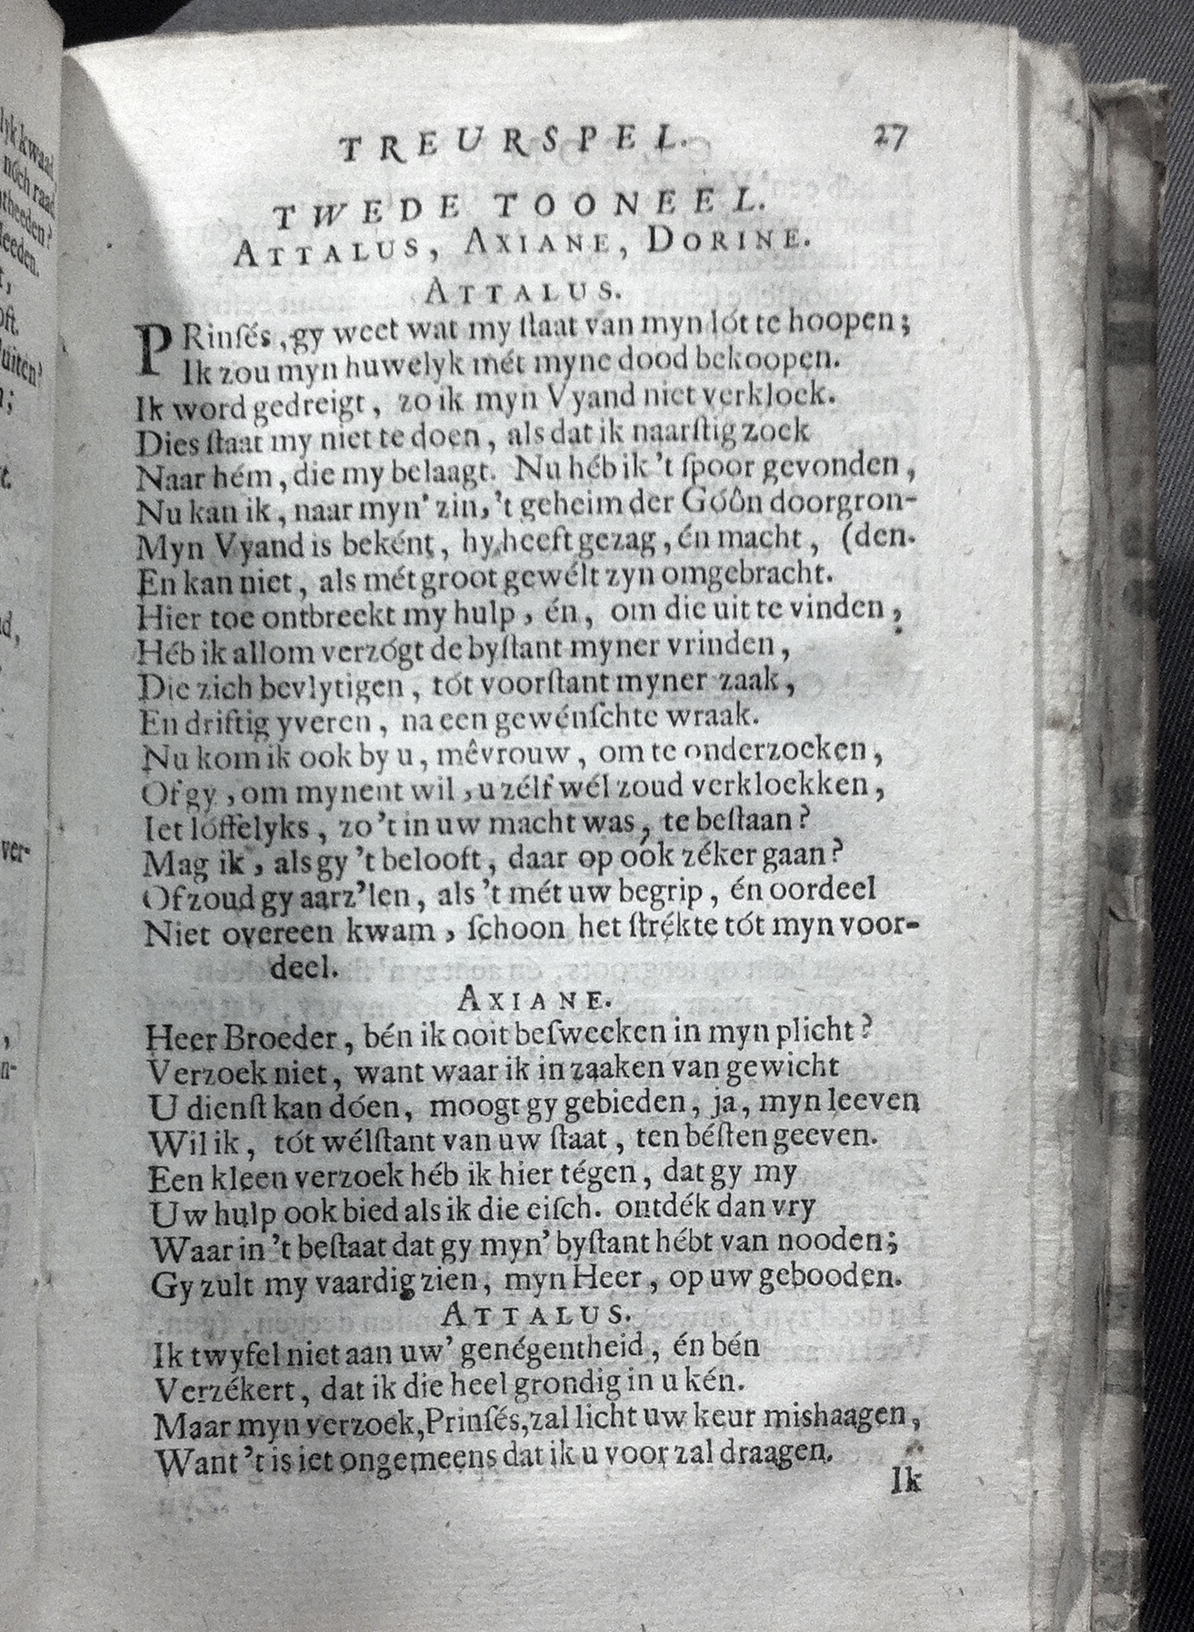 TREURSPEL. 27
TWEDE TOONEEL.
ATTALUS, AXIANE, DORINE.
ATTALUS.
PRinſés, gy weet wat my ſtaat van myn lót te hoopen;
Ik zou myn huwelyk mét myne dood bekoopen.
Ik word gedreigt, zo ik myn Vyand niet verkloek.
Dies ſtaat my niet te doen, als dat ik naarſtig zoek
Naar hém, die my belaagt. Nu héb ik 't ſpoor gevonden,
Nu kan ik, naar myn' zin, 't geheim der Góôn doorgron-
Myn Vyand is beként, hy heeft gezag, én macht, (den.
En kan niet, als mét groot gewélt zyn omgebracht.
Hier toe ontbreekt my hulp, én, om die uit te vinden,
Héb ik allom verzógt de byſtant myner vrinden,
Die zich bevlytigen, tót voorſtant myner zaak,
En driftig yveren, na een gewénſchte wraak.
Nu kom ik ook by u, mêvrouw, om te onderzoeken,
Of gy, om mynent wil, u zélf wél zoud verkloekken,
Iet lóffelyks, zo 't in uw macht was, te beſtaan?
Mag ik, als gy 't belooft, daar op oók zéker gaan?
Of zoud gy aarz'len, als 't mét uw begrip, én oordeel
Niet overeen kwam, ſchoon het ſtrékte tót myn voor-
deel.
AXIANE.
Heer Broeder, bén ik ooit beſweeken in myn plicht?
Verzoek niet, want waar ik in zaaken van gewicht
U dienſt kan dóen, moogt gy gebieden, ja, myn leeven
Wil ik, tót wélſtant van uw ſtaat, ten béſten geeven.
Een kleen verzoek héb ik hier tégen, dat gy my
Uw hulp ook bied als ik die eiſch. ontdék dan vry
Waar in 't beſtaat dat gy myn' byſtant hébt van nooden;
Gy zult my vaardig zien, myn Heer, op uw gebooden.
ATTALUS.
Ik twyfel niet aan uw' genégentheid, én bén
Verzékert, dat ik die heel grondig in u kén.
Maar myn verzoek, Prinſés, zal licht uw keur mishaagen,
Want 't is iet ongemeens dat ik u voor zal draagen.
Ik